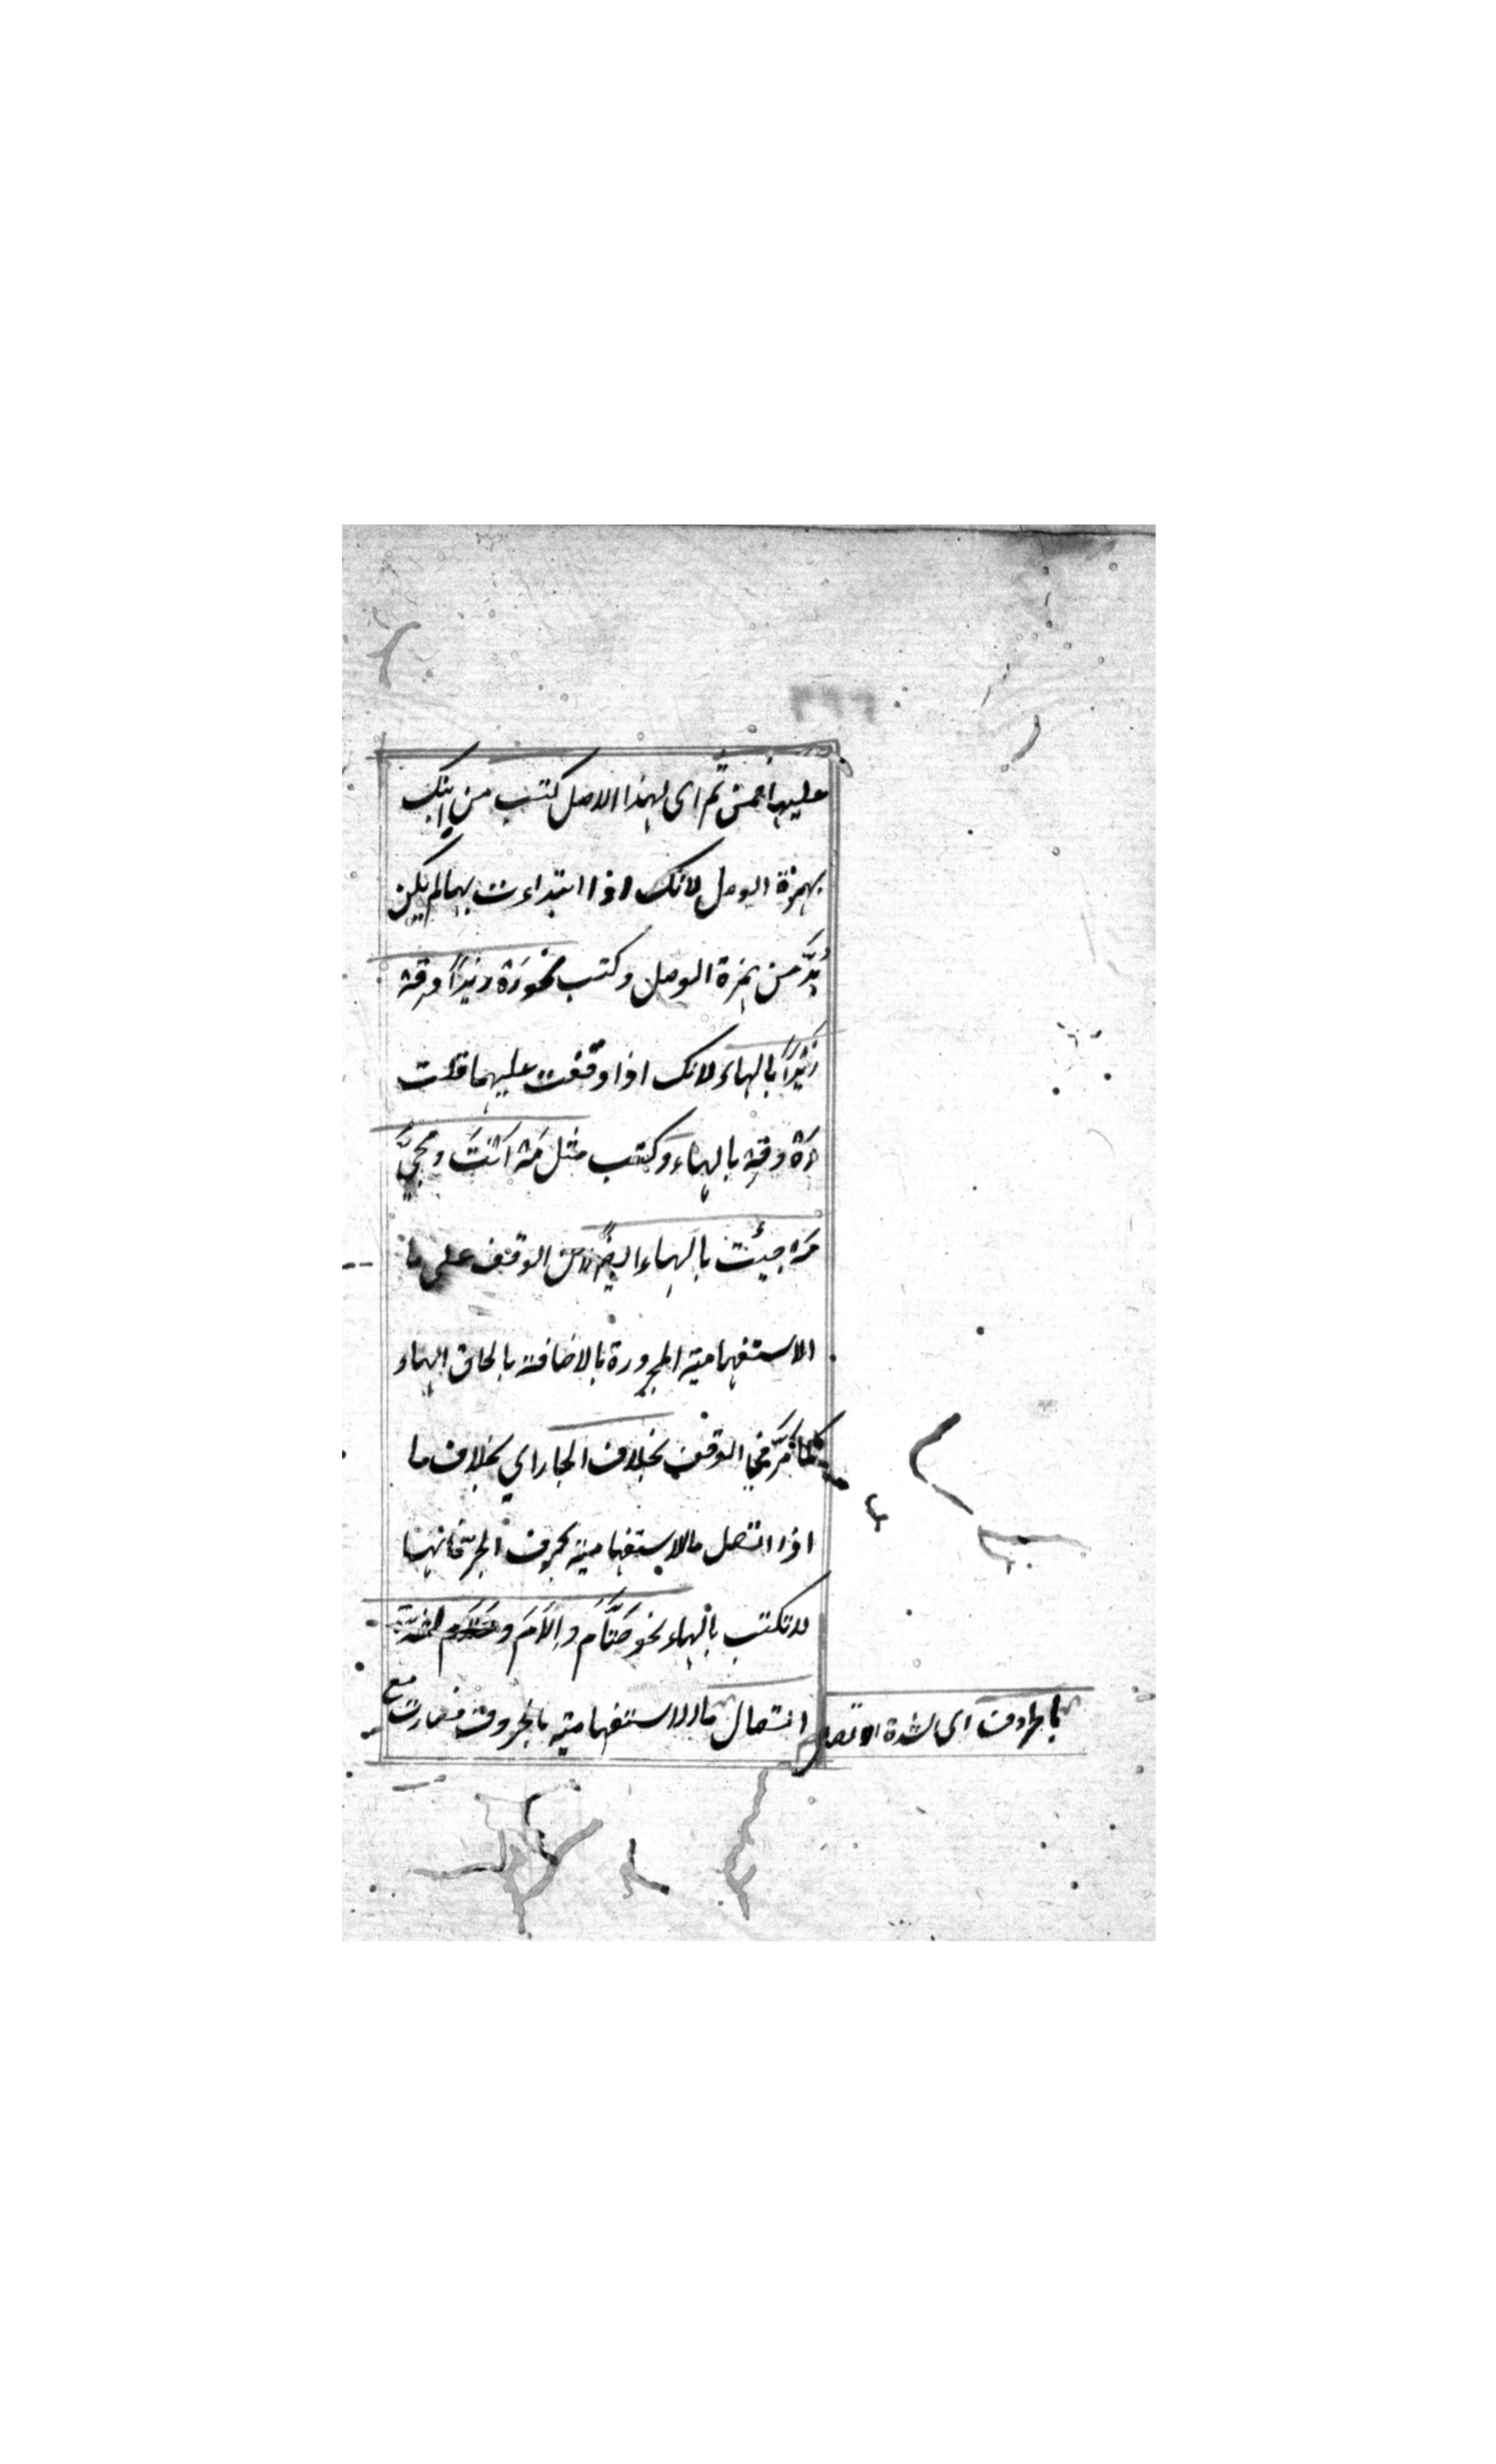 عليها فمن ثم اى لهذا الاصل كتب من ابنك
بهمزة الوصل لانك اذا ابتداءت بها لم يكن
بُدٌّ من همزة الوصل وكتب نحو رَهْ زيدًا وقه
زيدًا بالهاء لانك اذا وقفت عليهما قلت
رَهْ وقه بالهاء وكتب مثل مَهْ اَنْتَ ومجيَّ
مَهْ جئت بالهاء ايضًا لان الوقف على ما
الاستفهامية المجرورة بالاضافة بالحاق الهاء
كما مَرَّ في الوقف بخلاف الجار اي بخلاف ما
اذا اتصل ما الاستفهامية بحرف الجر فانها
لا تكتب بالهاء نحو حَتَّامَ وَاِلَامَ وَعَلَامَ لشدة
اتصال ما الاستفهامية بالحروف فصارت مع
بالحروف اى لشدة الاتصال